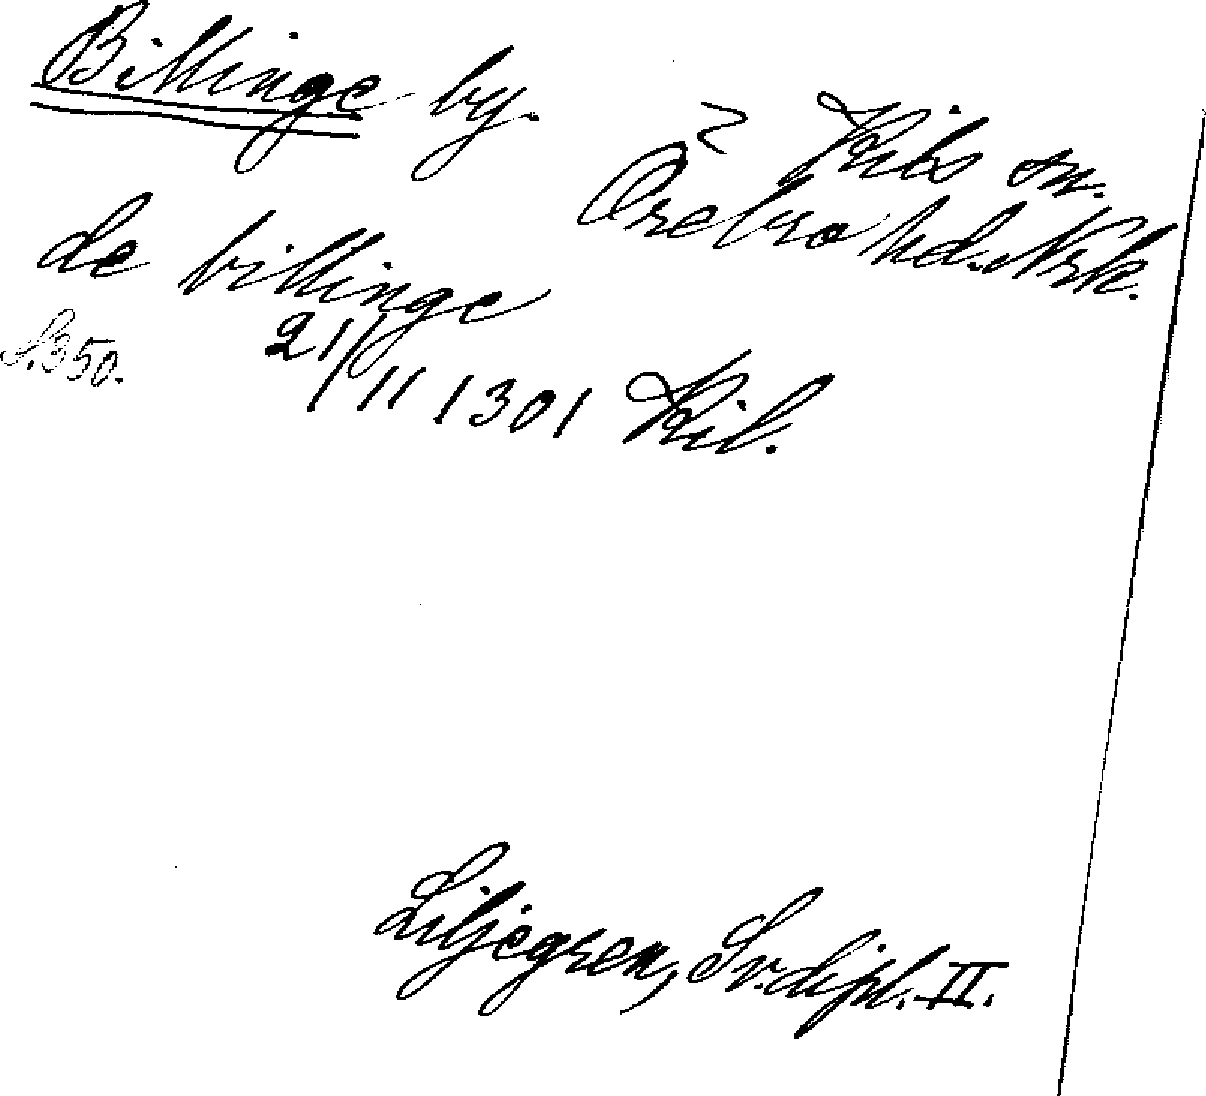 Billinge by.
Kils sn.
Örebro hd. Nrk.
de billinge
S. 350.
21/11 1301 Kil.
Liljegren, Sv. dipl. II.